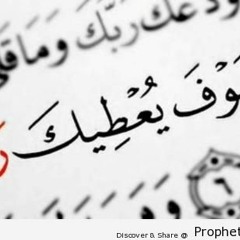 ودعك رَبُّكَ وَمَا
وْفَ يُعْطِيكَ
Discover & Share @ Prophet